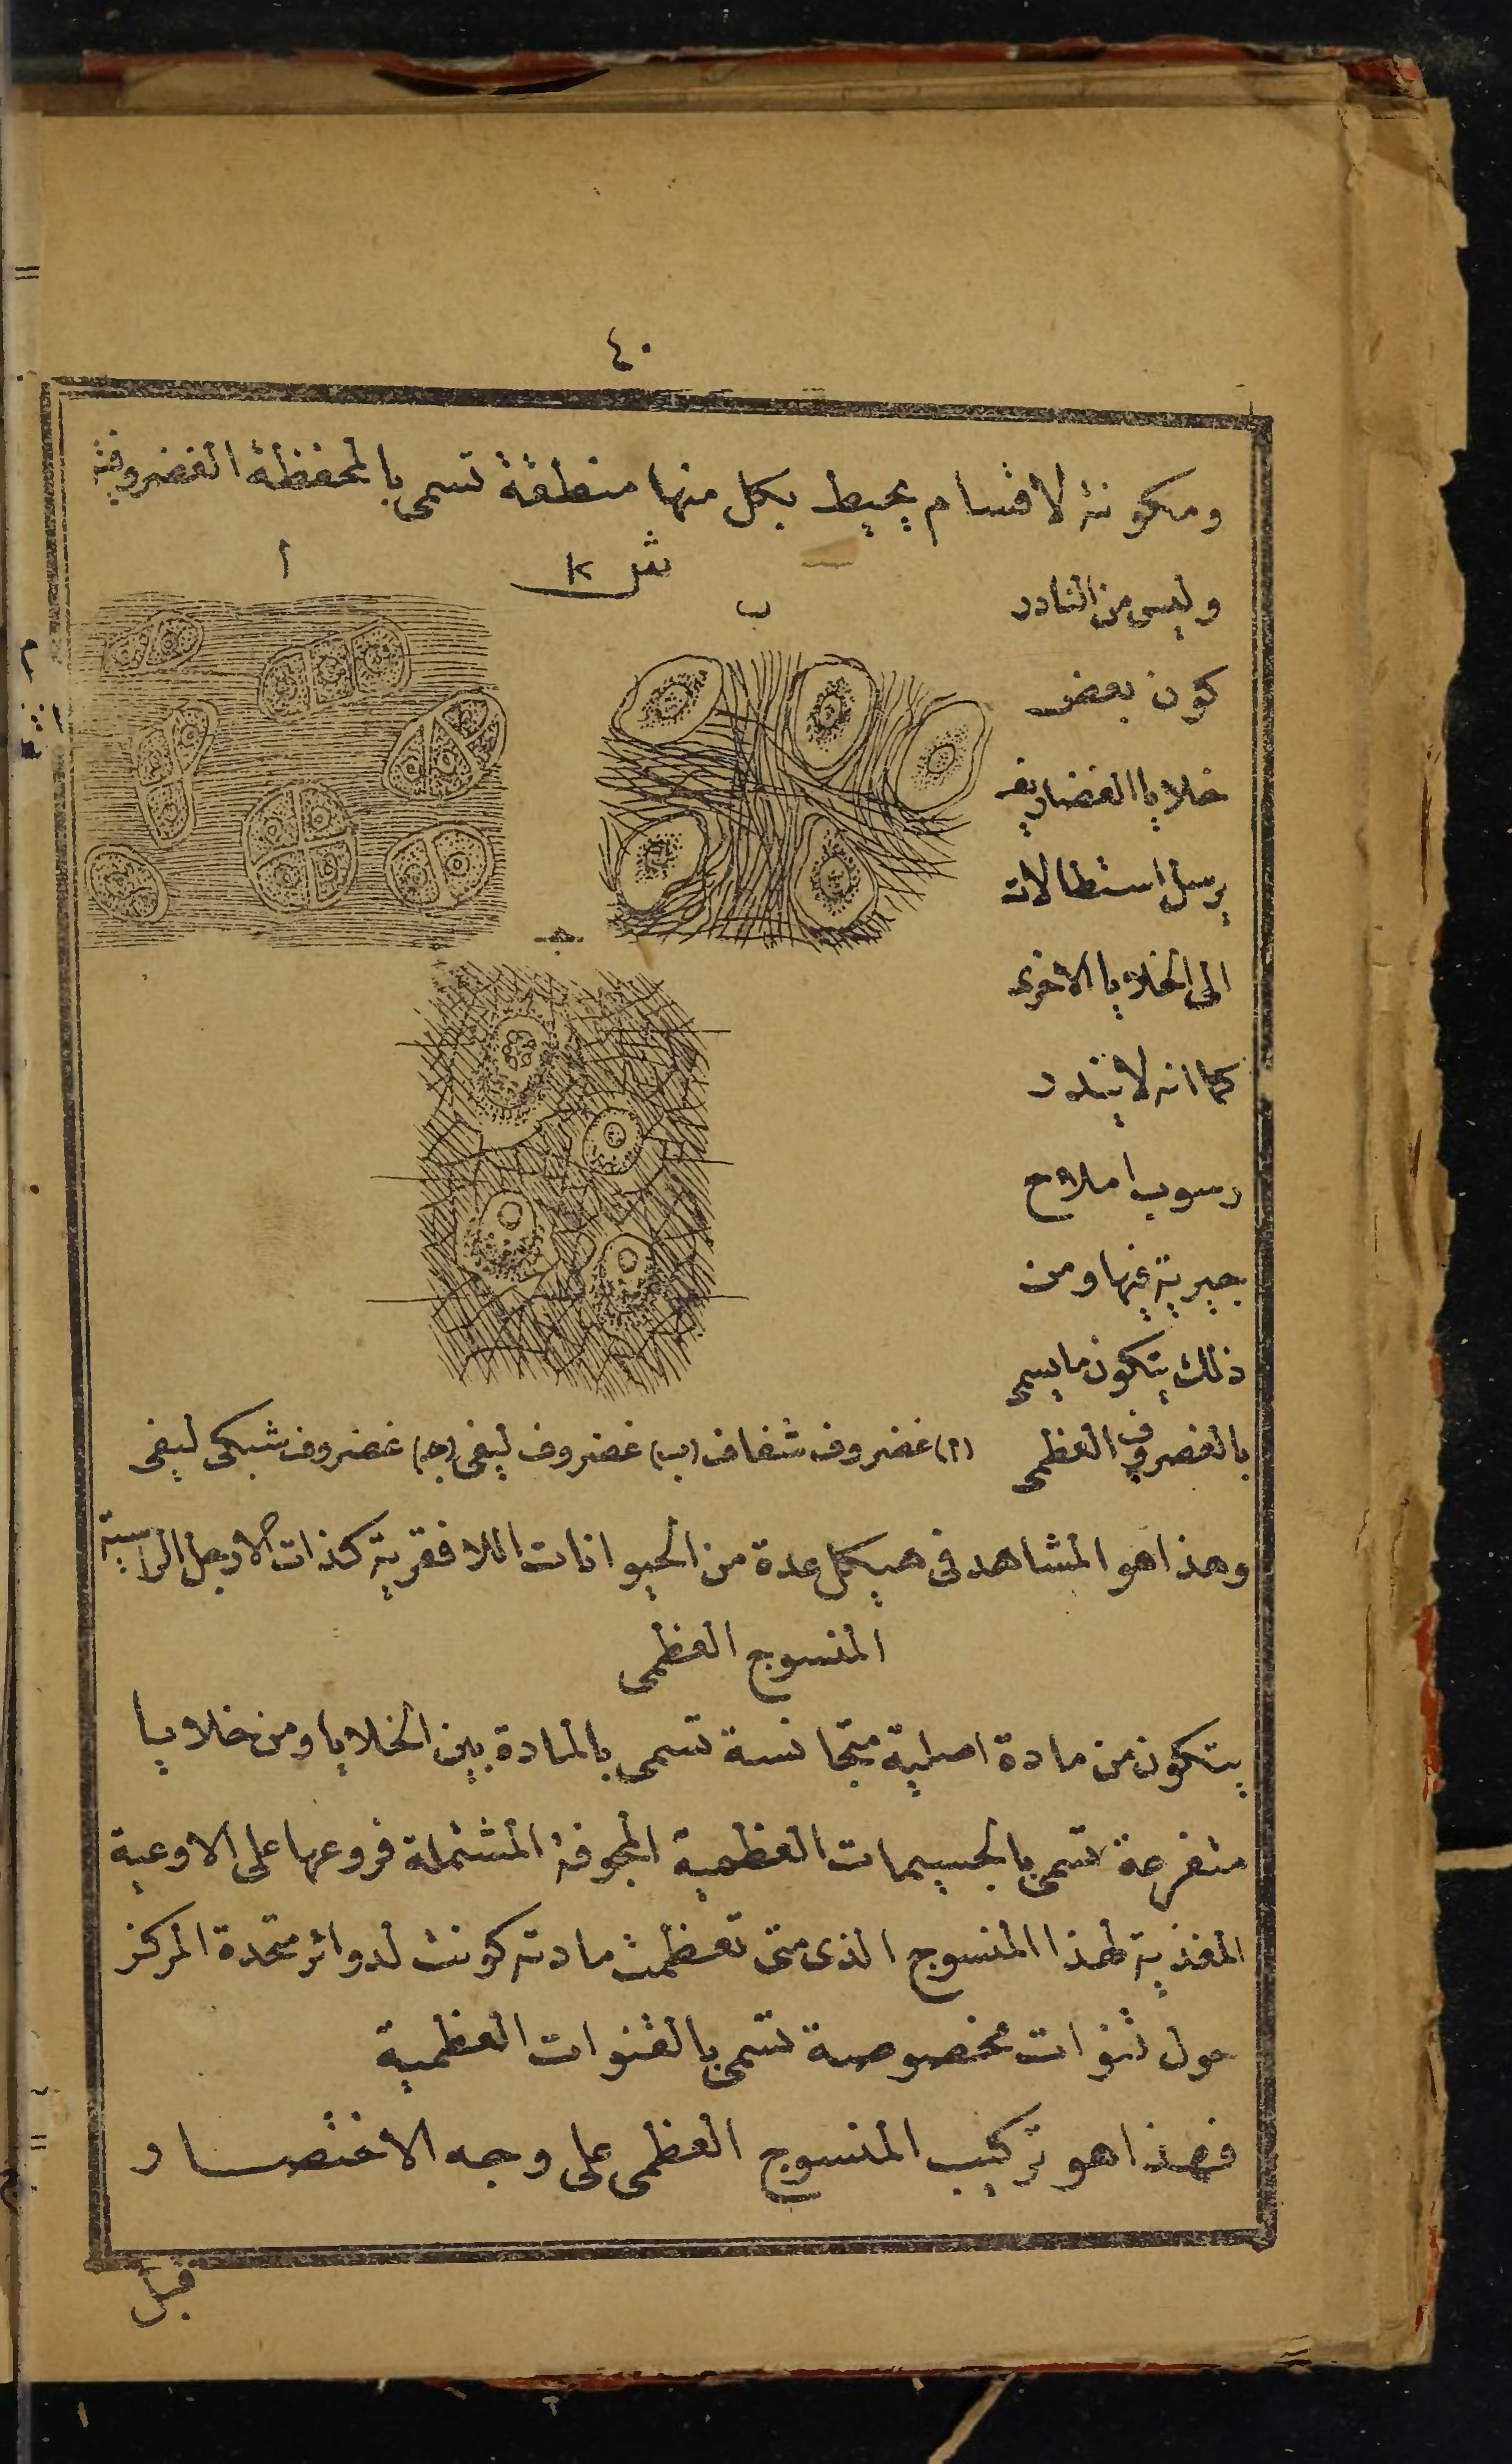 ٤٠
ومكونة لاقسام يحيط بكل منها منطقة تسمى بالمحفظة الغضروفية
ش
أ
ب
وليس من النادر
كون بعض
خلايا الغضاريف
يرسل استطالات
الى الخلايا الاخرى
كما انه لايندر
رسوب املاح
جيرية فيها ومن
ذلك يتكون مايسمى
بالغضروف العظمى
جـ
(أ) غضروف شفاف (ب) غضروف ليفى (جـ) غضروف شبكى ليفى
وهذا هو المشاهد فى هيكل عدة من الحيوانات اللافقرية كذات الارجل الراسية
المنسوج العظمى
يتكون من مادة اصلية متجانسة تسمى بالمادة بين الخلايا ومن خلايا
متفرعة تسمى بالجسيمات العظمية المجوفة المشتملة فروعها على الاوعية
المغذية لهذا المنسوج الذى متى تعظمت مادته كونت لدوائر متحدة المركز
حول قنوات مخصوصة تسمى بالقنوات العظمية
فهذا هو تركيب المنسوج العظمى على وجه الاختصار
قبل